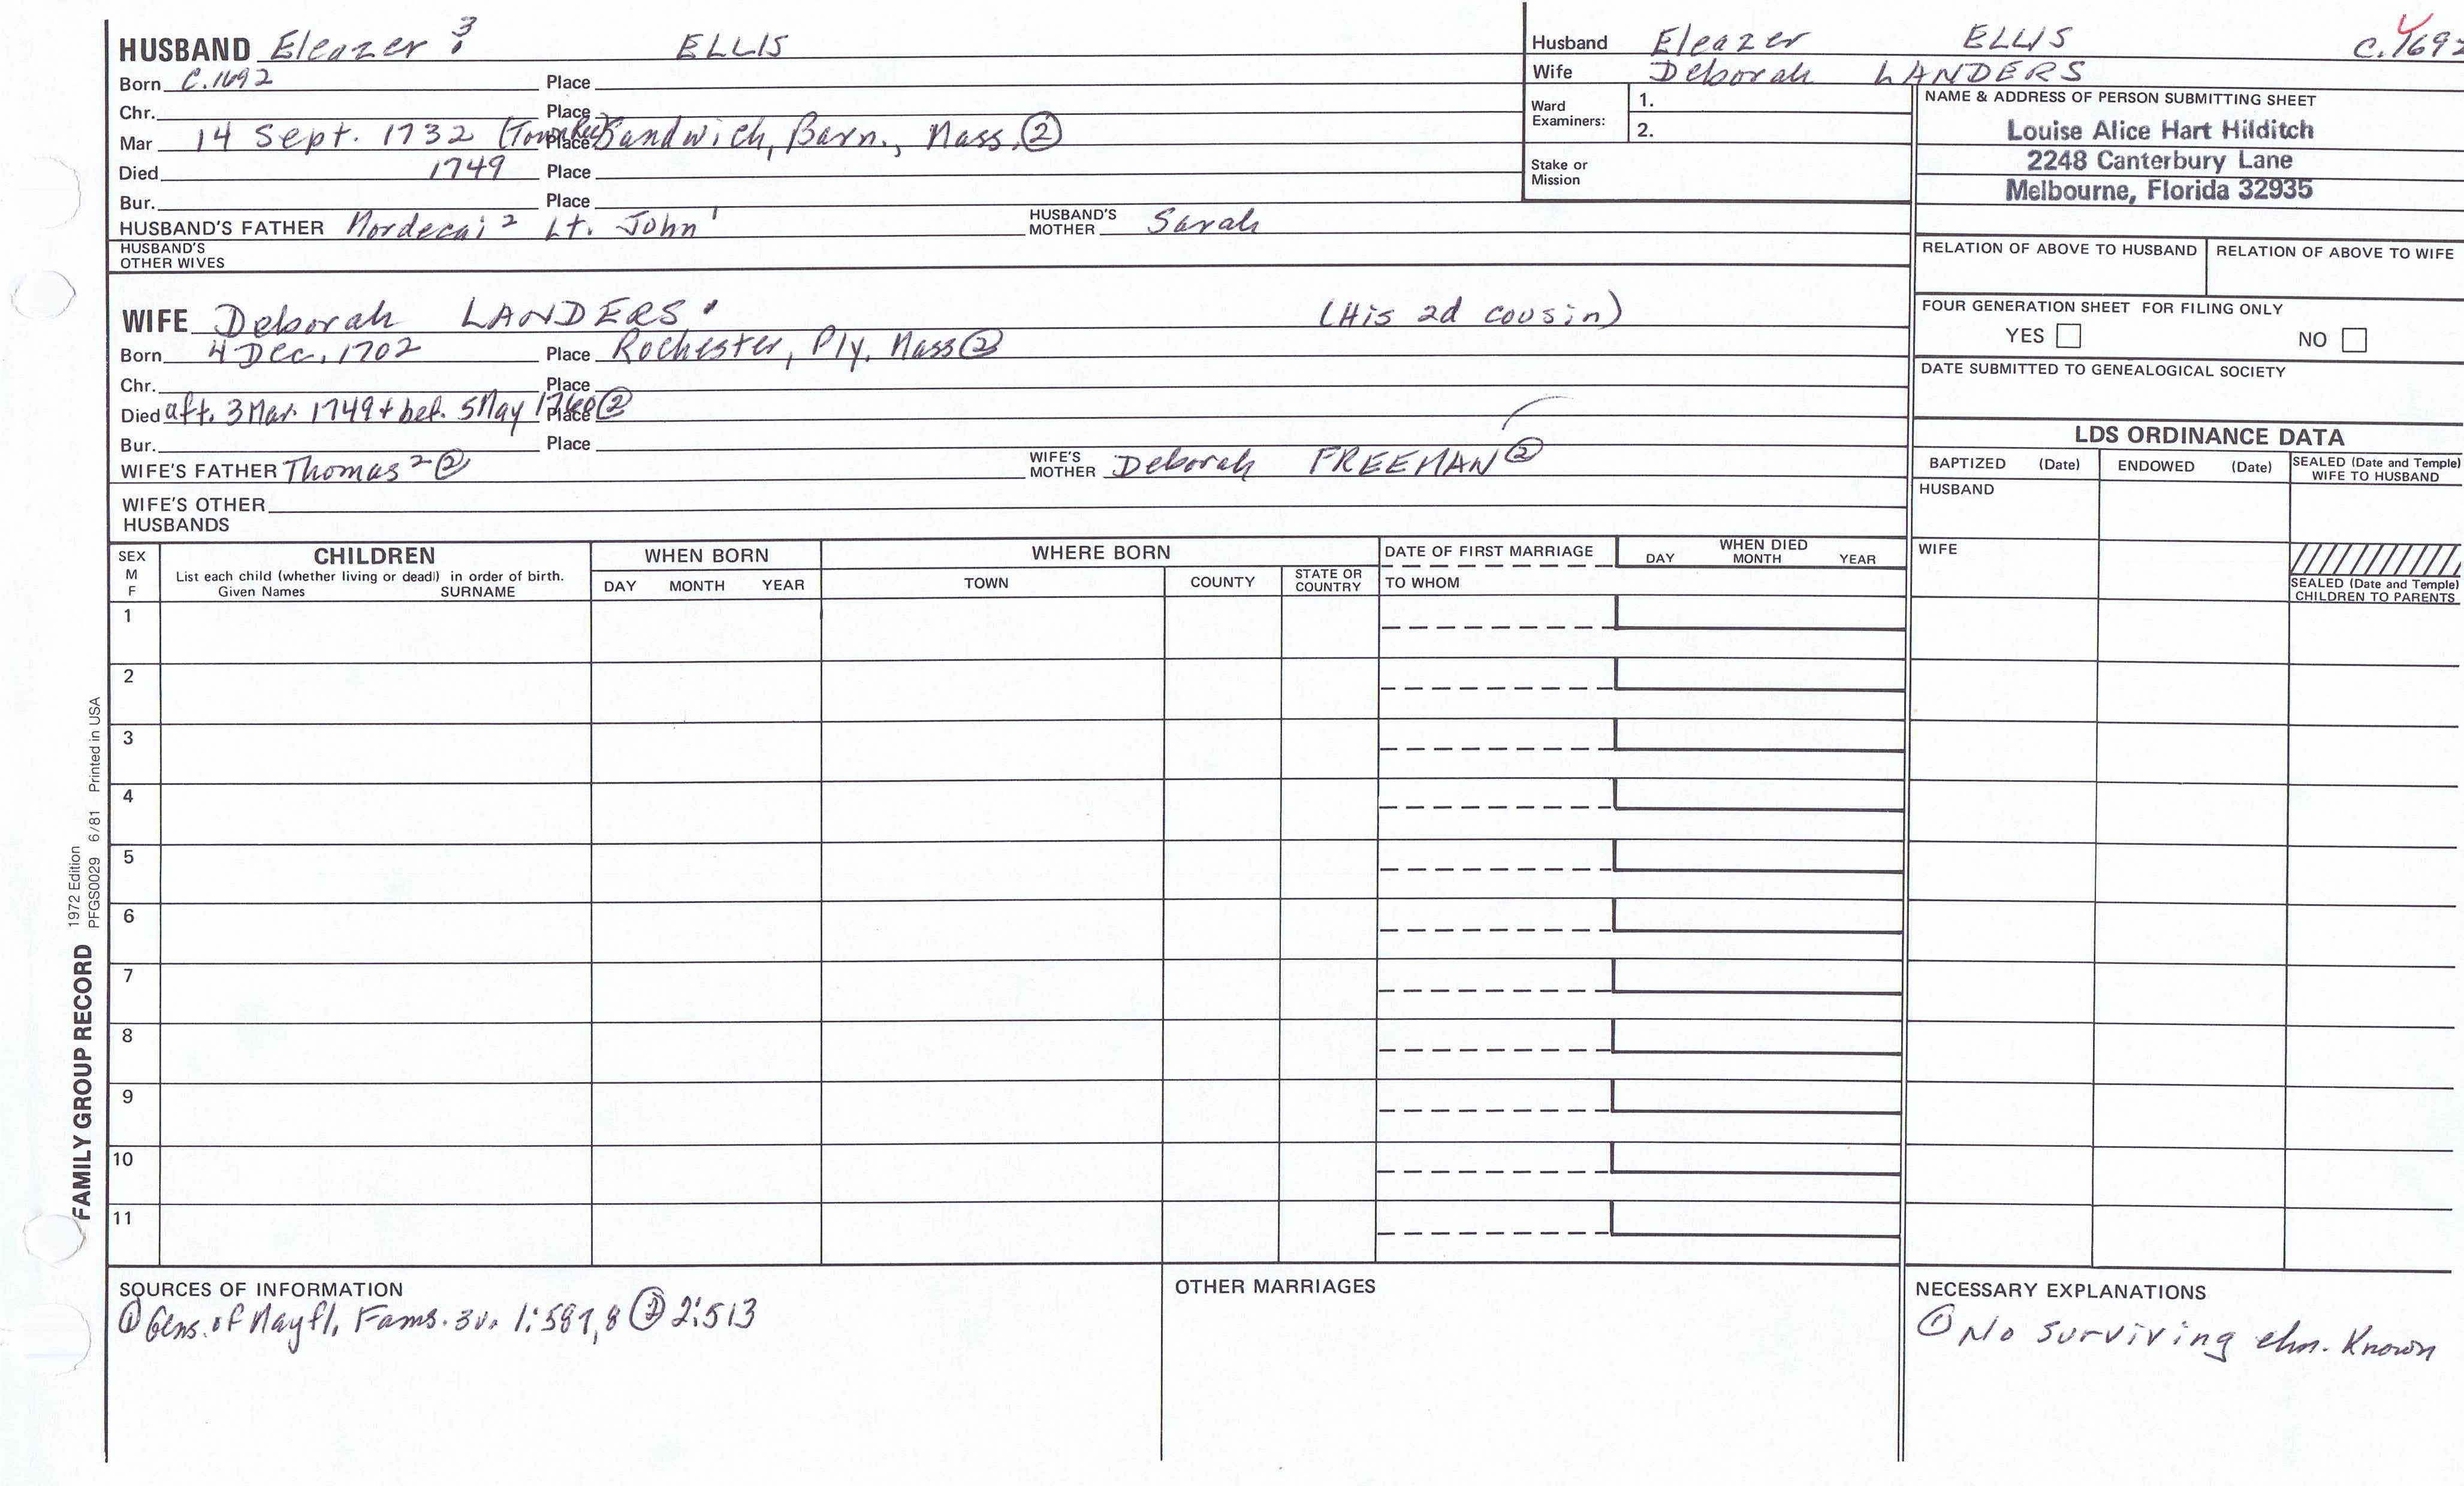 HUSBAND Eleazer 3 ELLIS
Born C.1692 Place
Chr. Place
Mar 14 Sept. 1732 (Town Rec) Place Sandwich, Barn., Mass. ②
Died 1749 Place
Bur. Place
HUSBAND'S FATHER Mordecai 2 Lt. John 1 HUSBAND'S MOTHER Sarah
HUSBAND'S OTHER WIVES
WIFE Deborah LANDERS (His 2d cousin)
Born 4 Dec. 1702 Place Rochester, Ply. Mass ②
Chr. Place
Died aft. 3 Mar. 1749 + bef. 5 May Place ②
Bur. Place
WIFE'S FATHER Thomas 2 ② WIFE'S MOTHER Deborah FREEMAN ②
WIFE'S OTHER HUSBANDS
Husband Eleazer ELLIS C.1692
Wife Deborah LANDERS
Ward Examiners: 1.
2.
Stake or Mission
NAME & ADDRESS OF PERSON SUBMITTING SHEET
Louise Alice Hart Hilditch
2248 Canterbury Lane
Melbourne, Florida 32935
RELATION OF ABOVE TO HUSBAND RELATION OF ABOVE TO WIFE
FOUR GENERATION SHEET FOR FILING ONLY
YES NO
DATE SUBMITTED TO GENEALOGICAL SOCIETY
LDS ORDINANCE DATA
BAPTIZED (Date) ENDOWED (Date) SEALED (Date and Temple) WIFE TO HUSBAND
HUSBAND
WIFE
SEALED (Date and Temple) CHILDREN TO PARENTS
SEX M F CHILDREN WHEN BORN WHERE BORN DATE OF FIRST MARRIAGE WHEN DIED
List each child (whether living or dead) in order of birth.
Given Names SURNAME DAY MONTH YEAR TOWN COUNTY STATE OR COUNTRY TO WHOM DAY MONTH YEAR
1
2
3
4
5
6
7
8
9
10
11
FAMILY GROUP RECORD
1972 Edition
PFGS0029 6/81 Printed in USA
SOURCES OF INFORMATION
① Gens. of Mayfl. Fams. 3v. 1:587,8 ② 2:513
OTHER MARRIAGES
NECESSARY EXPLANATIONS
① No surviving chn. Known